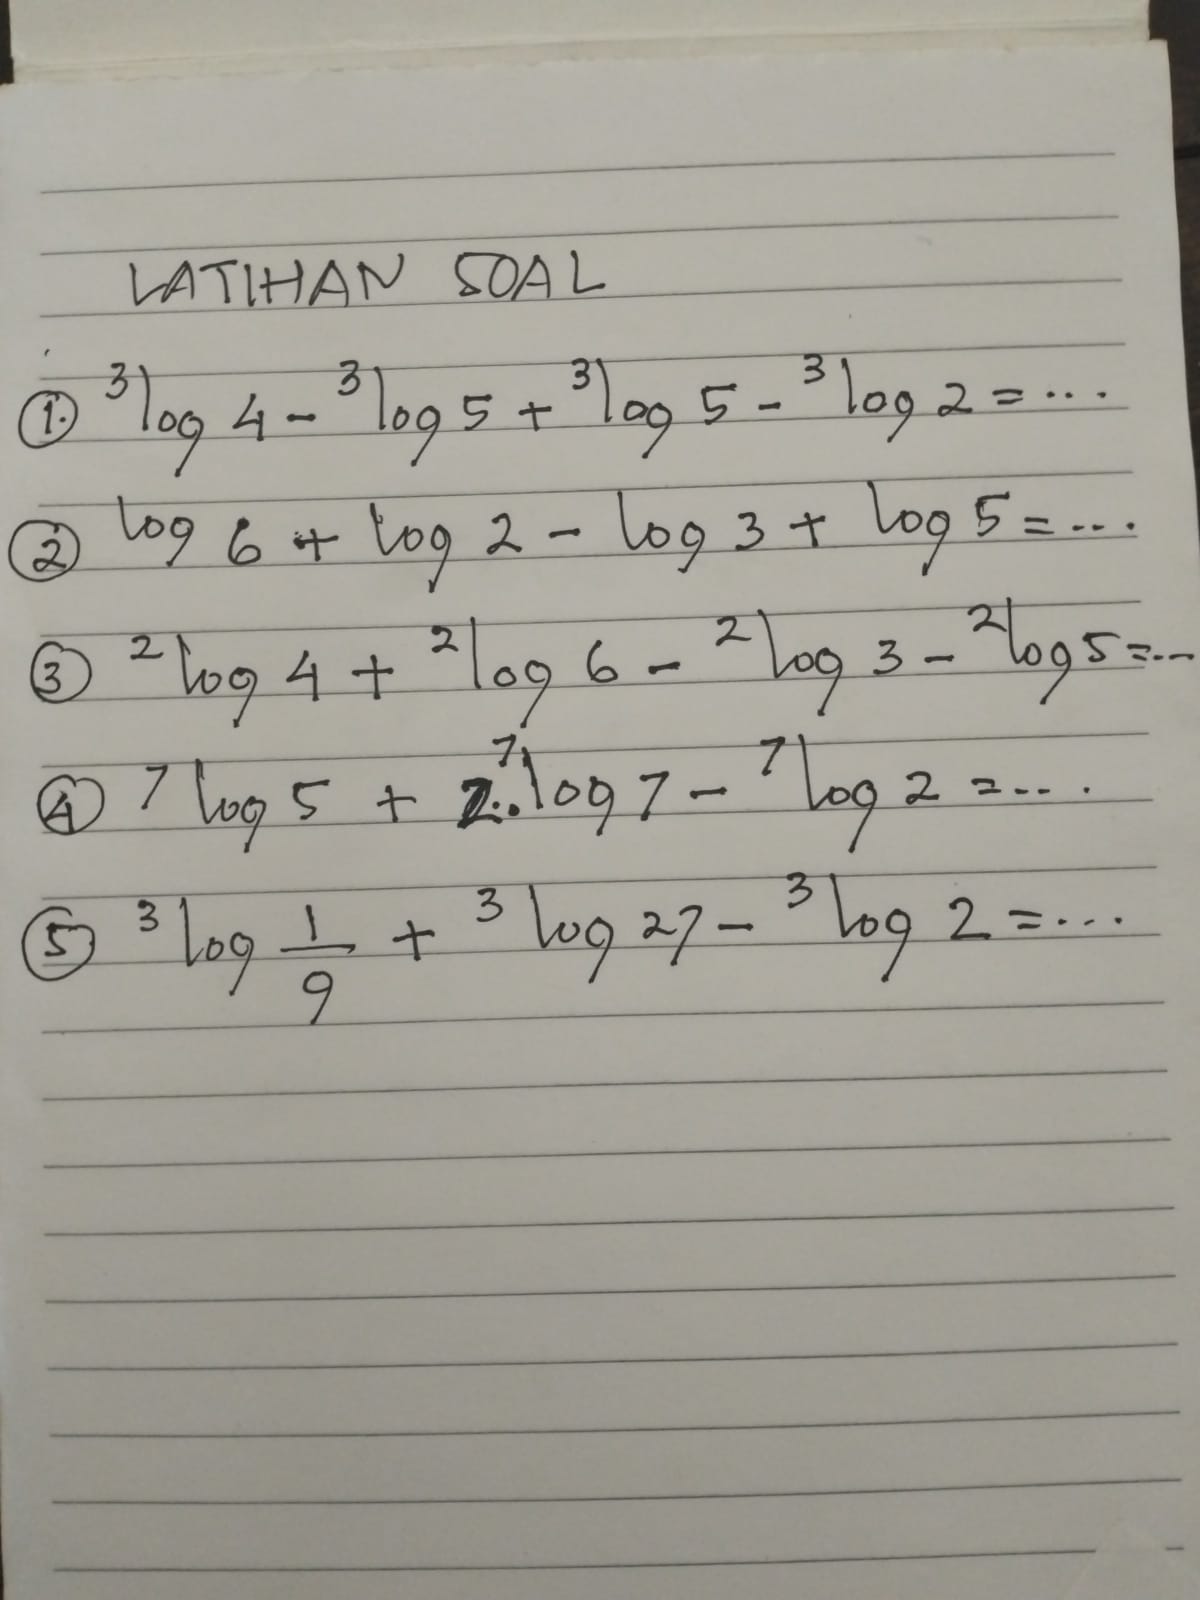 LATIHAN SOAL
① ³log 4 - ³log 5 + ³log 5 - ³log 2 = ...
② log 6 + log 2 - log 3 + log 5 = ...
③ ²log 4 + ²log 6 - ²log 3 - ²log 5 = ...
④ ⁷log 5 + 2. ⁷log 7 - ⁷log 2 = ...
⑤ ³log 1/9 + ³log 27 - ³log 2 = ...